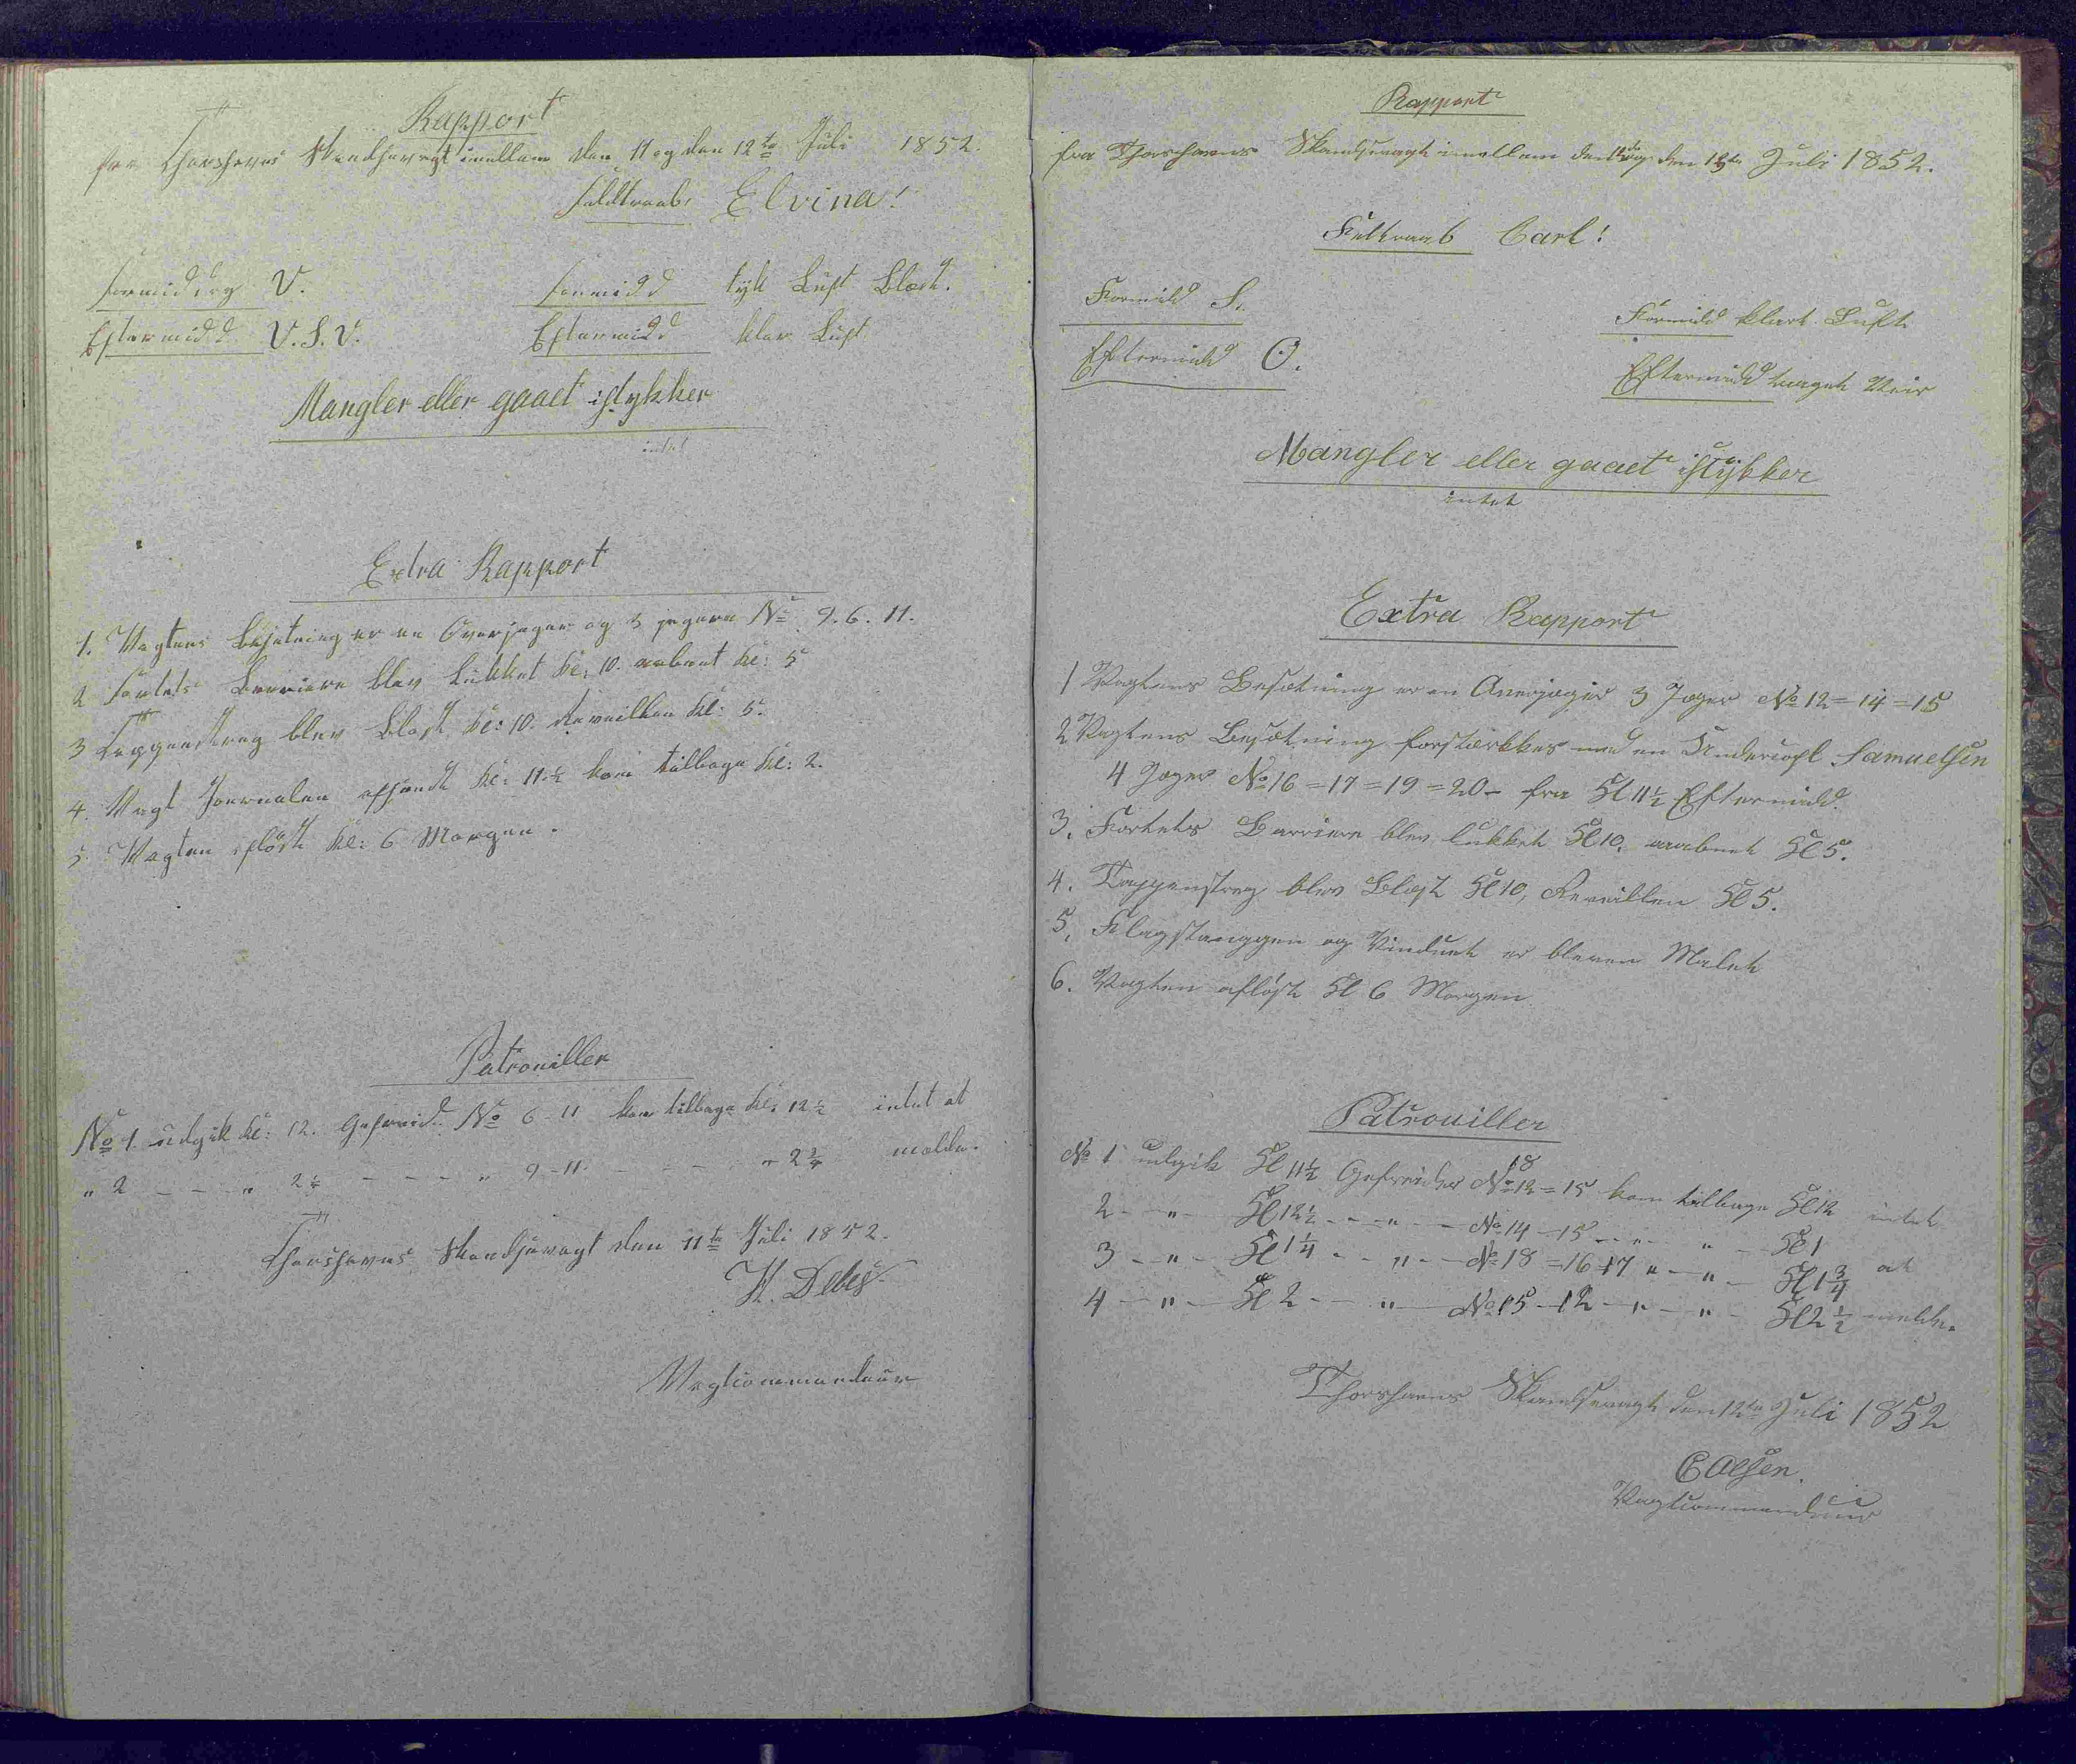 Rapport
fra Thorshavns Skandsevagt imellem den 11 og den 12te Juli 1852.
Feldtraab: Elvina!
Formiddag V. Formidd tyk Luft Blæst.
Eftermidd V.S.V. Eftermidd klar Luft
Mangler eller gaaet istykker
intet
Extra Rapport
1. Vagtens Besetning er en Overjæger og 3 jægere No 9. 6. 11.
2 Fortets Barriere blev Lukket kl: 10. aabnet kl: 5
3 Tappenstreg blev Blæst kl: 10. Reveillen kl: 5.
4. Vagt Journalen afsendt kl: 11½ kom tilbage kl: 2.
5. Vagten afløst kl: 6 Morgen.
Patrouiller
No 1. udgik kl: 12. Gefreid. No 6-11 kom tilbage kl: 12½ intet at
" 2 - - " 2¼ - - - " 9-11 - - - " 2¾ melde.
Thorshavns Skandsevagt den 11te Juli 1852.
H. Debes
Vagtcommandeur
Rapport
fra Thorshavns Skandsevagt imellem den 12te og den 13te Juli 1852.
Feltraab Carl!
Formidd S. Formidd klart Luft
Eftermidd O. Eftermidd taaget Veir
Mangler eller gaaet istykker
intet
Extra Rapport
1 Vagtens Besætning er en Overjæger 3 Jæger No 12=14=15
2 Vagtens Besætning forstærkkes med en Undercofl Samuelsen
4 Jæger No 16=17=19=20- fra Kl 11½ Eftermidd.
3. Fortets Barriere blev lukket Kl 10, aabnet Kl 5.
4. Tappenstreg blev Blæst Kl 10, Reveillen Kl 5.
5. Flagstanggen og Vinduet er bleven Malet
6. Vagten afløst Kl 6 Morgen
Patrouiller
No 1 udgik Kl 11½ Gefreider No 18 12=15 kom tilbage Kl 12 intet
2 - " - Kl 12½ - - " - - No 14-15 - " - " - Kl 1
3 - " - Kl 1¼ - - " - - No 18=16-17 " - " - Kl 1¾ at
4 - " - Kl 2 - - " - No 15-12 - " - " - Kl 2½ melde.
Thorshavns Skandsevagt den 12te Juli 1852
C Olsen.
Vagtcommandeur